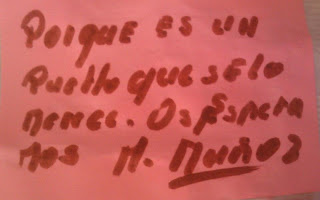 Porque es un
Puello que se lo
merece. Os Espera
mos M. Muñoz